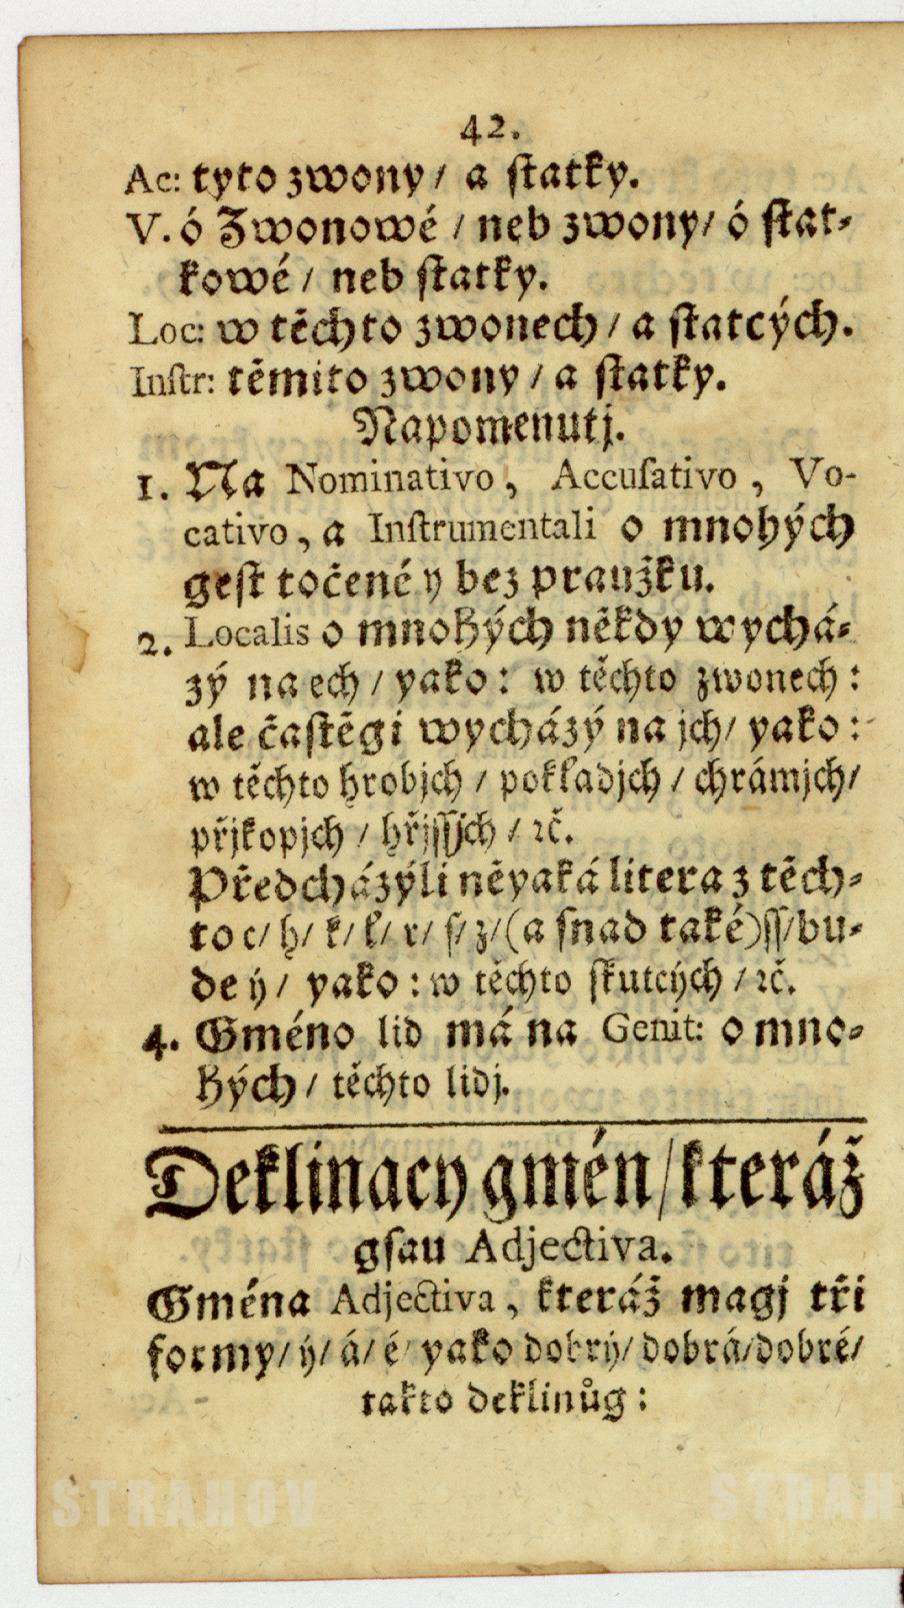 42.
Ac: tyto zwony / a statky.
V. ó Zwonowé / neb zwony / ó stat-
kowé / neb statky.
Loc: w těchto zwonech / a statcých.
Instr: těmito zwony / a statky.
Napomenutj.
1. Na Nominativo, Accuſativo, Vo-
cativo, a Inſtrumentali o mnohých
geſt točené y bez praužku.
2. Localis o mnohých někdy wychá-
zý na ech / yako: w těchto zwonech:
ale častěgi wycházý na jch / yako:
w těchto hrobjch / pokładjch / chrámjch /
přjkopjch / hřjſſjch / ꝛč.
Předcházýli něyaká litera z těch-
to c / h / k / ł / r / ſ / z / (a ſnad také) ſſ / bu-
de ý / yako: w těchto ſkutcých / ꝛč.
4. Gméno lid má na Genit: o mno-
hých / těchto lidj.
Deklinacy gmén / kteráž
gſau Adjectiva.
Gména Adjectiva, kteráž magj tři
formy / ý / á / é / yako dobrý / dobrá / dobré /
takto deklinůg:
STRAHOV